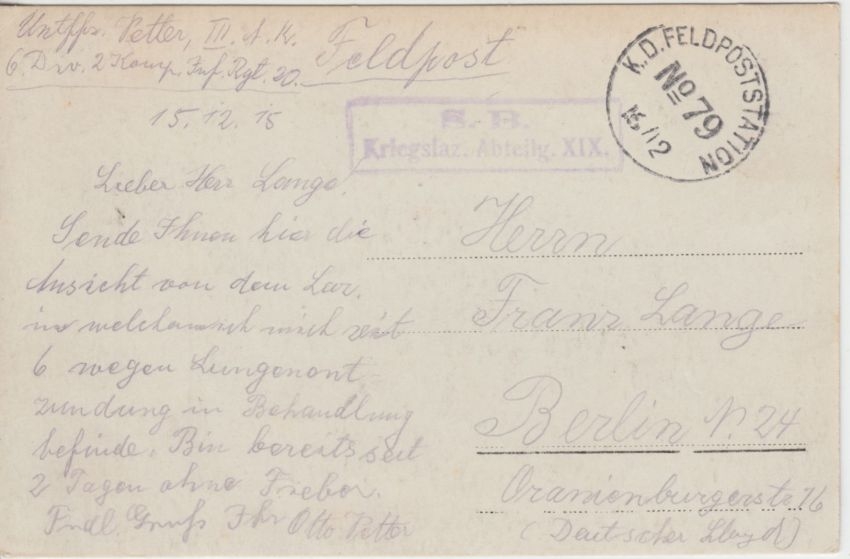 Untffz. Petter, III. A. K.
6. Div. 2 Komp. Inf. Rgt. 20.
Feldpost
K.D.FELDPOSTSTATION
No 79
15/12
S. B.
Kriegslaz. Abteilg. XIX.
15.12.15
Lieber Herr Lange.
Sende Ihnen hier die
Ansicht von dem Laz.
in welchem ich mich seit
6 wegen Lungenent-
zündung in Behandlung
befinde. Bin bereits seit
2 Tagen ohne Fieber.
Frdl. Gruß Ihr Otto Petter
Herrn
Franz Lange
Berlin N. 24
Oranienburgerstr 76
(Deutscher Lloyd)